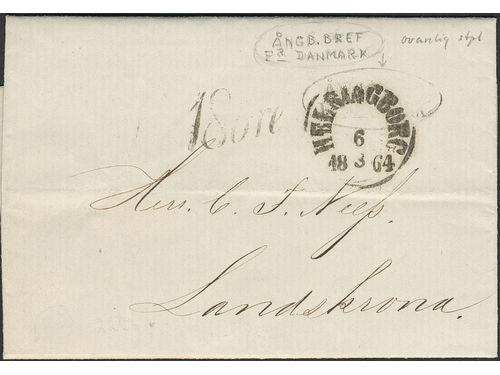 ÅNGB. BREF
FR DANMARK
ovanlig stpl
18öre
HELSINGBORG
6
18 3 64
Herr. C. F. Neess.
Landskrona.